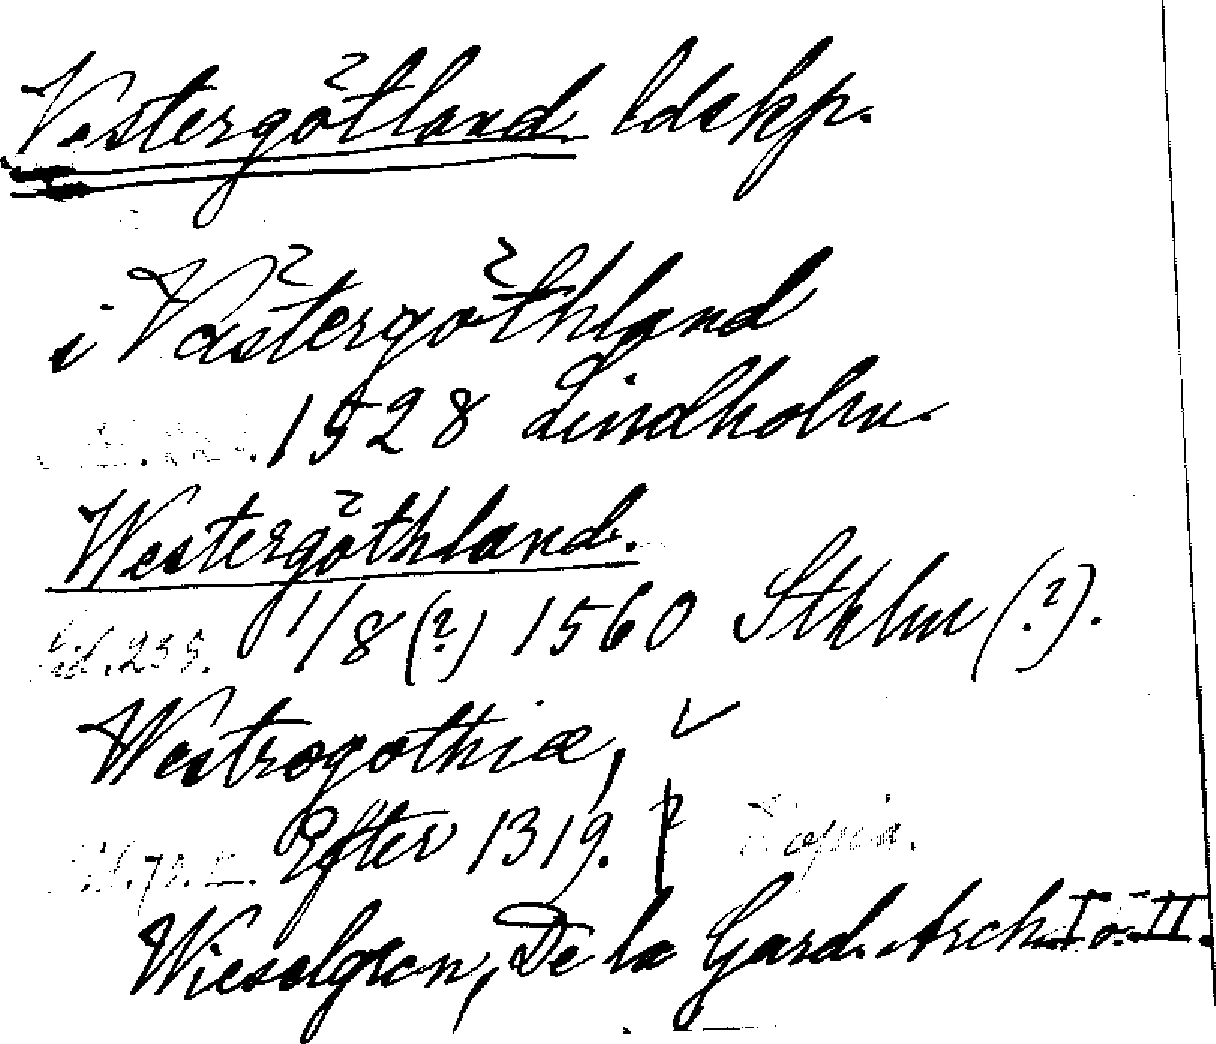 Vestergötland ldskp.
i Västergöthland
1528 Lindholm.
Westergöthland.
Sid. 235. 1/8 (?) 1560 Sthlm (?).
Westrogothiæ,
Efter 1319. Kopia.
Wieselgren, De la Gard. Arch. I o. II.